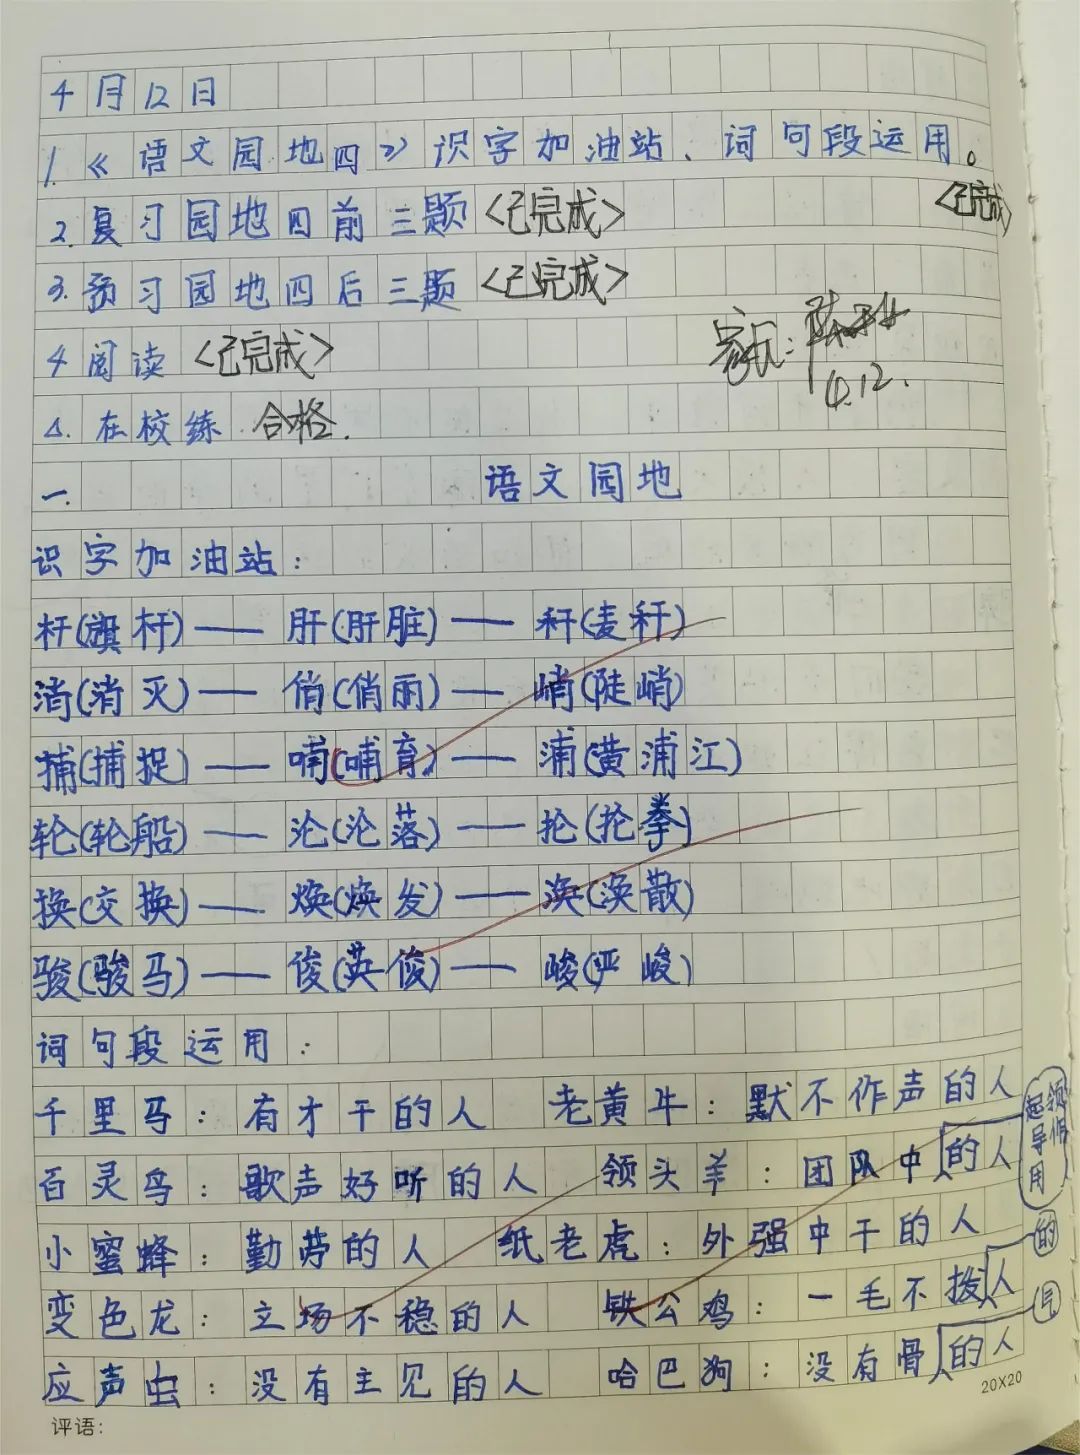 4月12日
1.《语文园地四》识字加油站、词句段运用。
<已完成>
2.复习园地四前三题<已完成>
3.预习园地四后三题<已完成>
4阅读<已完成>
家长:
4.12.
4.在校练 合格.
一. 语文园地
识字加油站:
杆(旗杆)——肝(肝脏)——秆(麦秆)
消(消灭)——俏(俏丽)——峭(陡峭)
捕(捕捉)——哺(哺育)——浦(黄浦江)
轮(轮船)——沦(沦落)——抡(抡拳)
换(交换)——焕(焕发)——涣(涣散)
骏(骏马)——俊(英俊)——峻(严峻)
词句段运用:
千里马:有才干的人 老黄牛:默不作声的人
百灵鸟:歌声好听的人 领头羊:团队中起领导作用的人
小蜜蜂:勤劳的人 纸老虎:外强中干的人
变色龙:立场不稳的人 铁公鸡:一毛不拨的人
应声虫:没有主见的人 哈巴狗:没有骨气的人
20X20
评语: